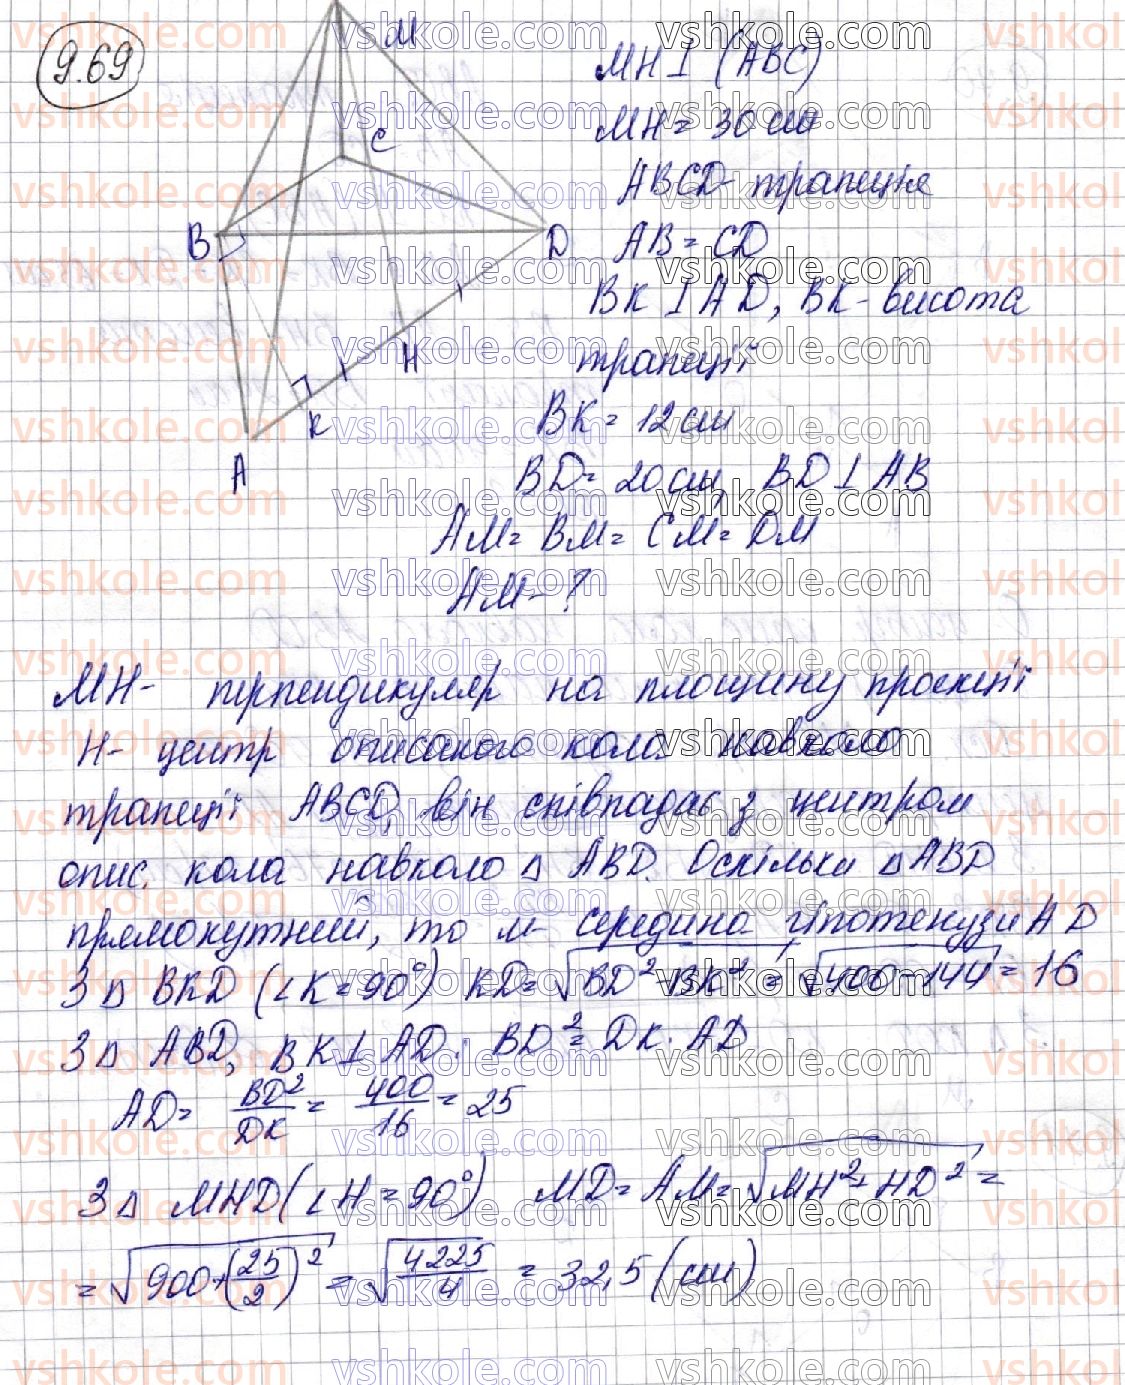 9.69
M
C
B
D
H
K
A
MH ⊥ (ABC)
MH = 30 см
ABCD - трапеція
AB = CD
BK ⊥ AD, BK - висота
трапеції
BK = 12 см
BD = 20 см, BD ⊥ AB
AM = BM = CM = DM
AM - ?
MH - перпендикуляр на площину проекції
H - центр описаного кола навколо
трапеції ABCD, він співпадає з центром
опис. кола навколо △ ABD. Оскільки △ ABD
прямокутний, то м - середина гіпотенузи AD
З △ BKD (∠K = 90°) KD = √(BD² - BK²) = √(400 - 144) = 16
З △ ABD, BK ⊥ AD. BD² = DK · AD
AD = BD²/DK = 400/16 = 25
З △ MHD (∠H = 90°) MD = AM = √(MH² + HD²) =
= √(900 + (25/2)²) = √(4225/4) = 32,5 (см)
vshkole.com